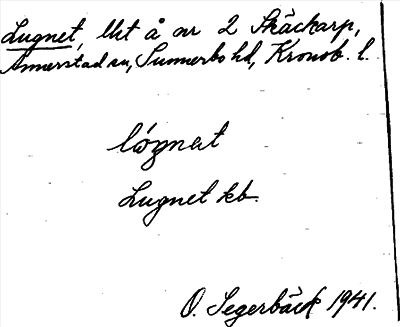 Lugnet, lht å nr 2 Skäckarp,
Annerstad sn, Sunnerbo hd, Kronob. l.
lógnat
Lugnet kb.
O. Segerbäck 1941.